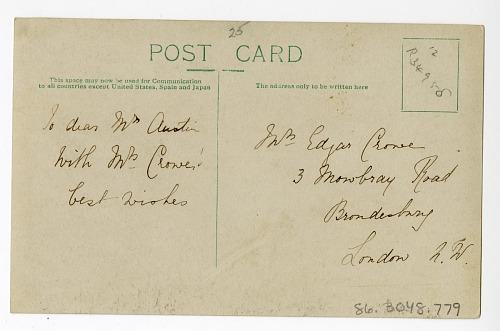 25
POST CARD
This space may now be used for Communication
to all countries except United States, Spain and Japan
The address only to be written here
To dear Mrs Austin
With Mrs Crowe's
best wishes
Mrs Edgar Crowe
3 Mowbray Road
Brondesbury
London N.W.
12
86.3048.779